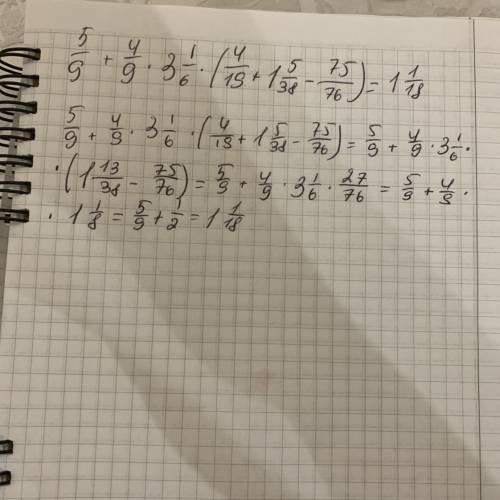 5/9 + 4/9 · 3 1/6 · (4/19 + 1 5/38 - 75/76) = 1 1/18
5/9 + 4/9 · 3 1/6 · (4/19 + 1 5/38 - 75/76) = 5/9 + 4/9 · 3 1/6 ·
· (1 13/38 - 75/76) = 5/9 + 4/9 · 3 1/6 · 27/76 = 5/9 + 4/9 ·
· 1 1/8 = 5/9 + 1/2 = 1 1/18